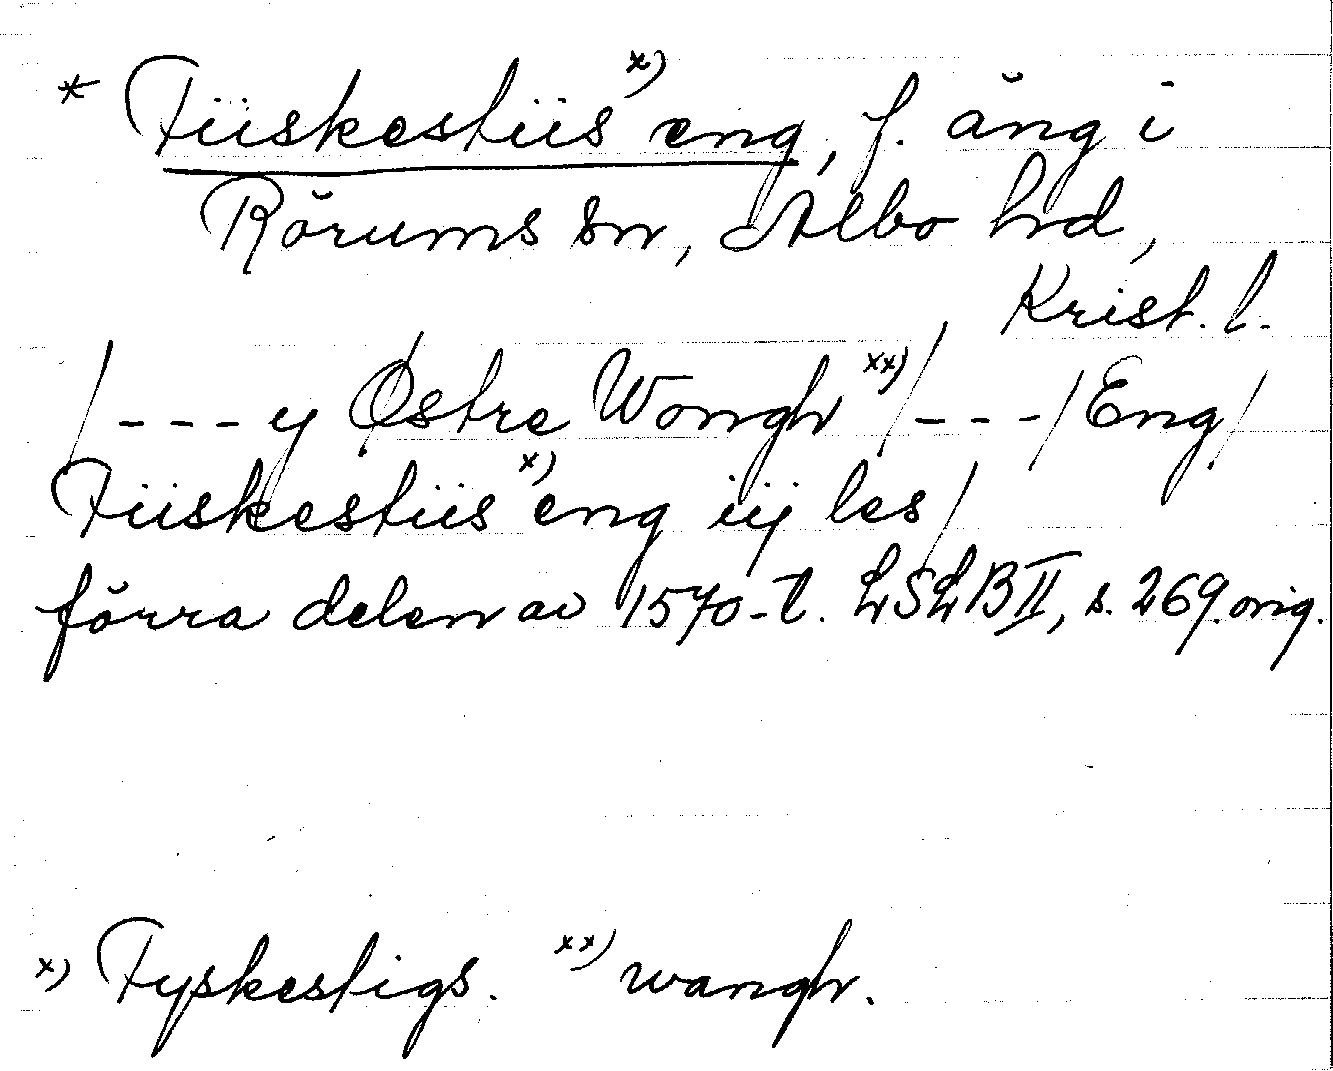 * Fiiskestiis x) eng, f. äng i
Rörums sn, Albo hd,
Krist. l.
/ - - - y Østre Wongh xx) / - - - / Eng /
Fiiskestiis x) eng iij les /
förra delen av 1570-t. LSLB II, s. 269. orig.
x) Fyskestigs. xx) wangh.